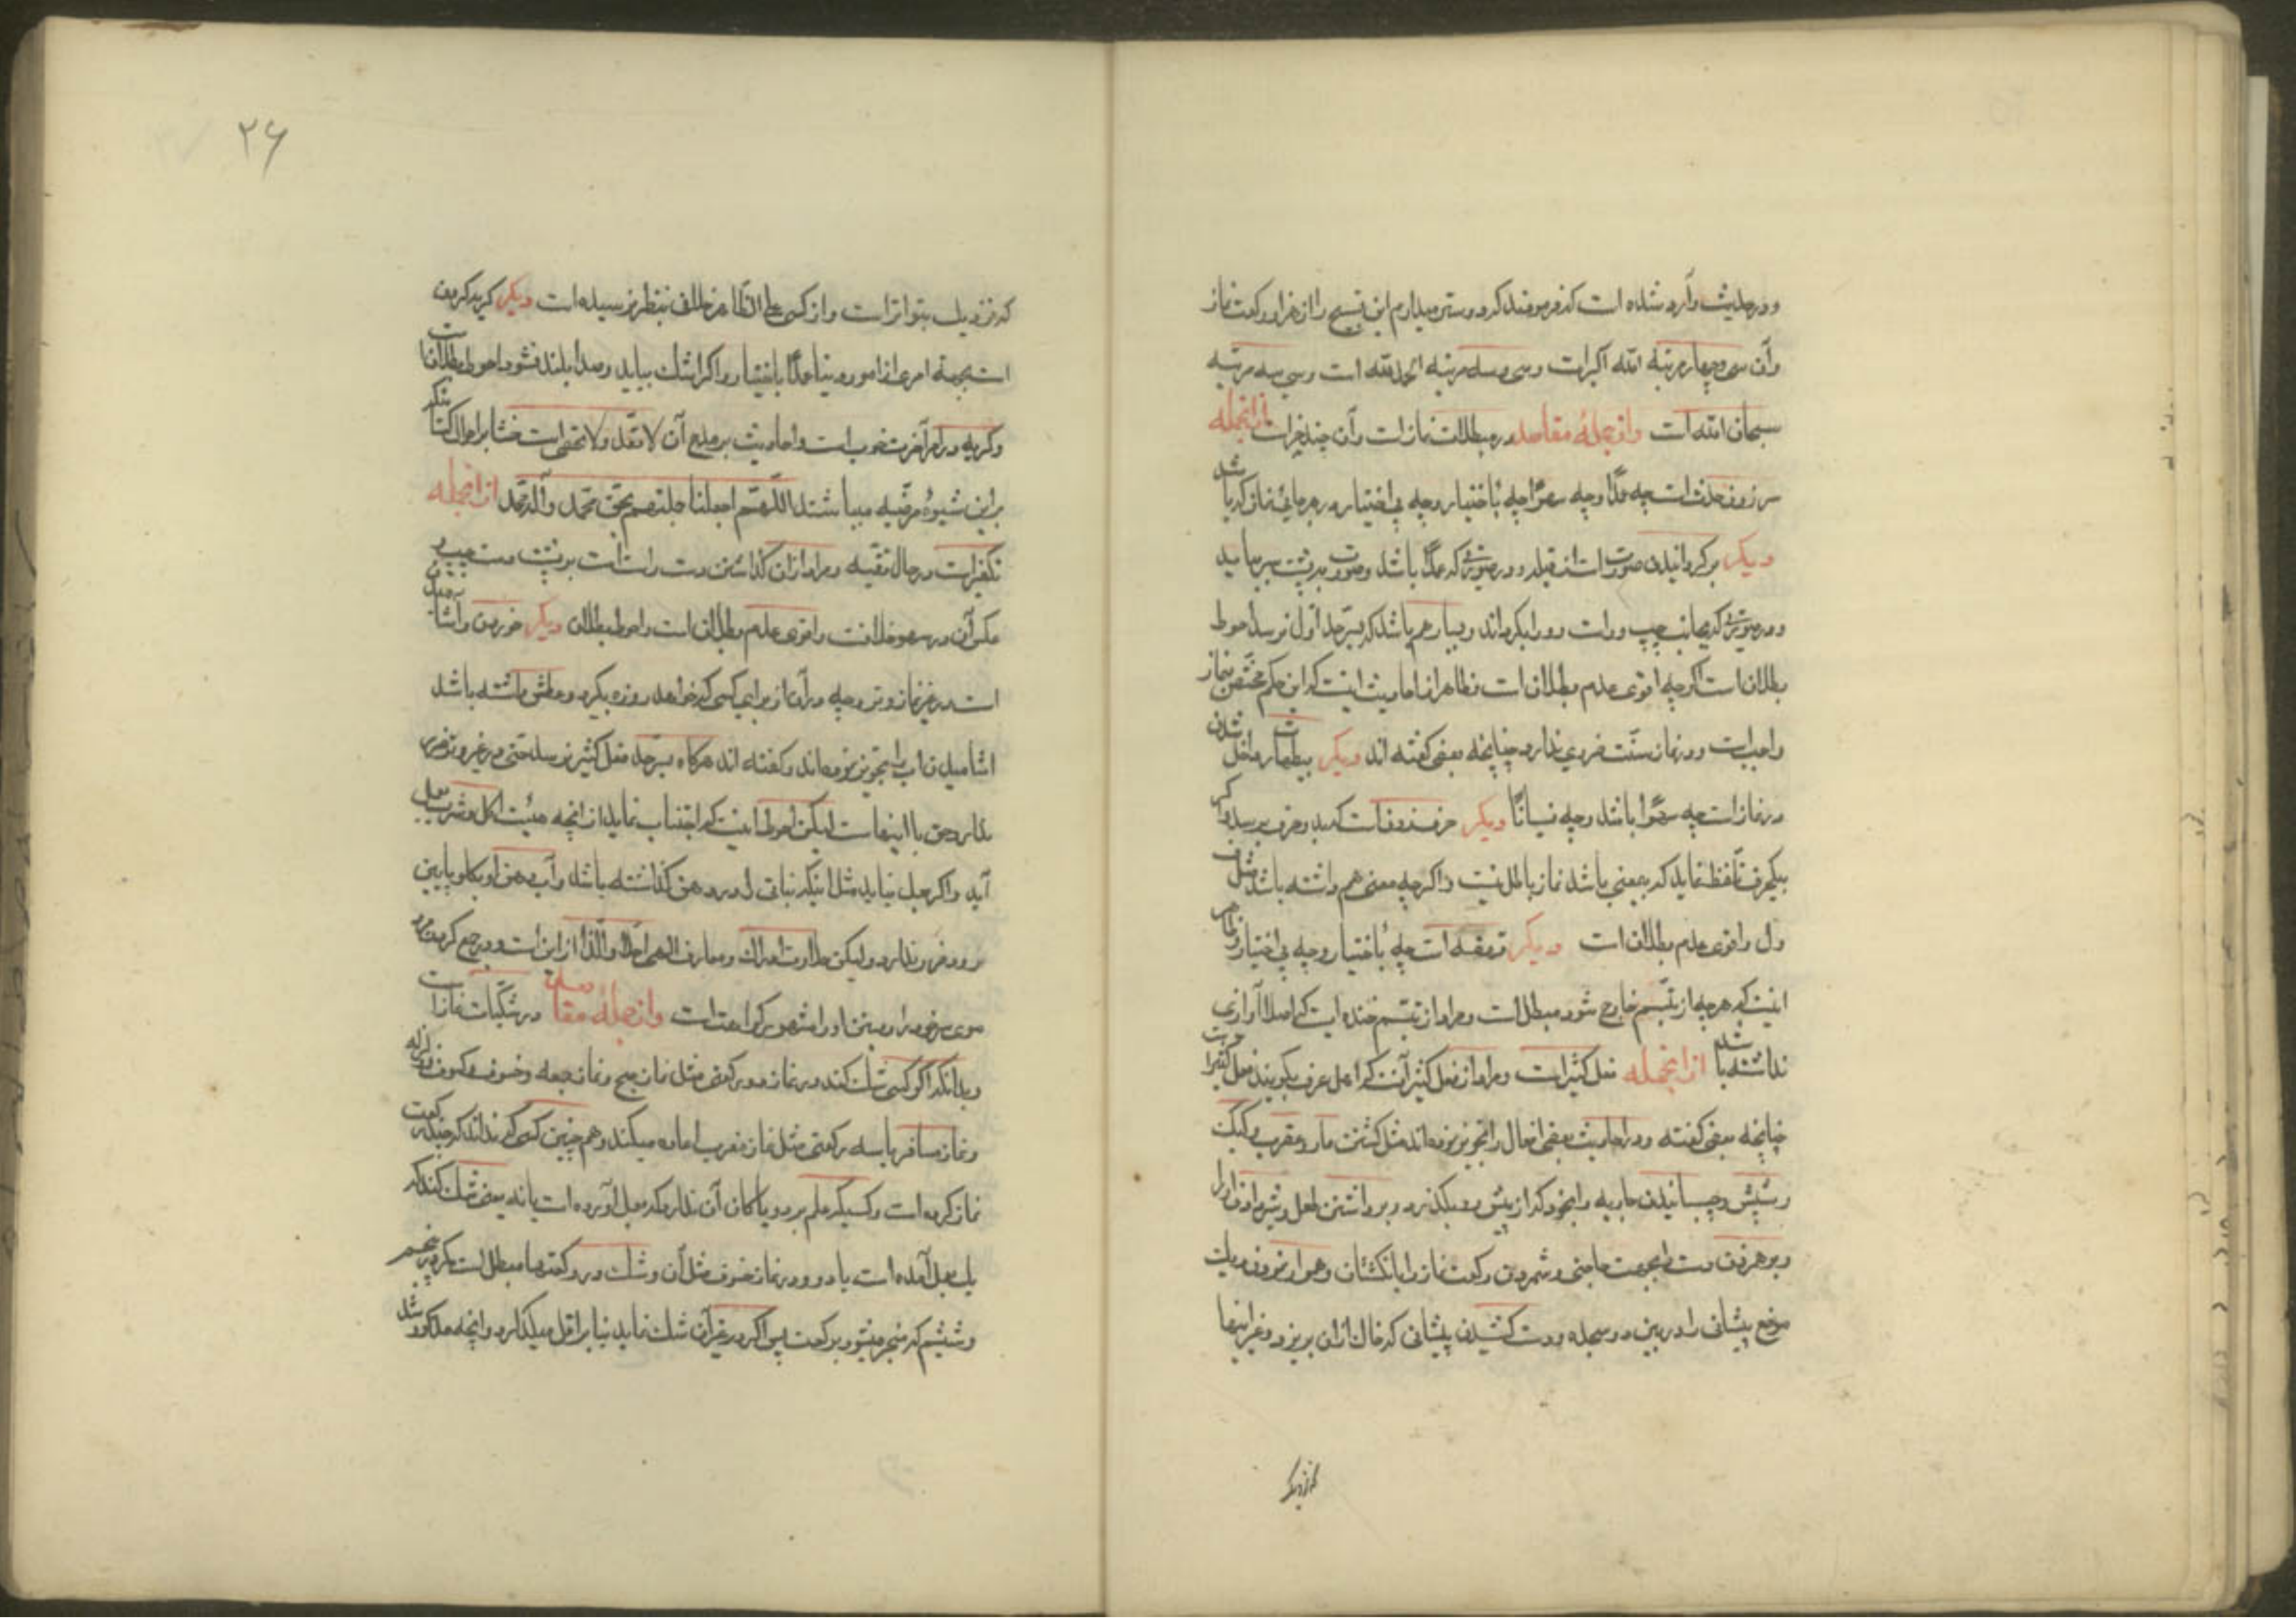 و در حدیث وارد شده است که فرمودند که دوستر میدارم این تسبیح را از هزار رکعت نماز
و آن سی و چهار مرتبه الله اکبر است و سی و سه مرتبه الحمد لله است و سی سه مرتبه
سبحان الله است و از جملهٔ مقاصد در مبطلات نماز است و آن چند چیز است از انجمله
سر زدن حدث است چه عمدًا و چه سهوًا چه باختیار و چه بی اختیار در هر جای نماز که باشد
دیگر برگردانیدن صورت است از قبله در صورتی که عمدًا باشد و صورت به پشت سر نماید
و در صورتی که بجانب چپ و راست رو را بگرداند و بسیار هم باشد که بسرحد اول نرسد احوط
بطلان است اگر چه اقوی عدم بطلان است و ظاهر از احادیث اینست که این حکم مختص بنماز
واجب است و در نماز سنّت ضرری ندارد چنانچه بعضی گفته اند دیگر بیطهارت داخل شدن
در نماز است چه سهوًا باشد و چه نسیانًا دیگر حرف زدن است که بدو حرف برسد و اگر
بیکحرف تلفظ نماید که بمعنی باشد نماز باطل نیست و اگر چه معنی هم داشته باشد مثل ق
و ل و اقوی عدم بطلان است دیگر قهقهه است چه باختیار و چه بی اختیار و ظاهر
اینست که هر چه از تبسّم خارج شود مبطل است و مراد از تبسّم خنده ایست که اصلا آوازی
نداشته باشد از انجمله فعل کثیر است و مراد از فعل کثیر آنست که اهل عرف بگویند فعل کثیر است
چنانچه بعضی گفته و در احادیث بعضی افعال را تجویز نموده اند مثل کشتن مار و عقرب و کیک
و شپش و چسبانیدن جاریه را بخود که از پیش رو بگذرد و برداشتن طفل و شیر دادن او را
و بر هم زدن دست را بجهت حاجتی و شمردن رکعت نماز را بانگشتان و هموار نمودن ریگ
موضع پیشانی را در بین دو سجده و دست کشیدن پیشانی که خاک از آن بریزد و غیر اینها
که نزدیک
۲۶
که نزدیک بتواتر است و از کسی علی الظاهر خلاف بنظر نرسیده است دیگر گریه کردن
است بجهة امری از امور دنیا عمدًا باختیار و اگر اشک بیاید و صدا بلند نشود احوط بطلان است
و گریه در امر آخرت خوب است و احادیث بر مدح آن لا تعدّ و لا تحصی است خوشا بر احوال کسانیکه
براین شیوهٔ مرضیّه میباشند اللّهم اجعلنا منهم بحق محمّد و آل محمّد از انجمله
تکفیر است در حال تقیّه و مراد از آن گذاشتن دست راست است بر پشت دست چپ و
عکس آن در سهو خلافست و اقوی عدم بطلان است و احوط بطلان دیگر خوردن و آشامیدن
است در غیر نماز وتر و چه در آن از برای کسی که خواهد روزه بگیرد و عطش داشته باشد
آشامیدن آب را تجویز نموده اند و گفته اند هرگاه بسرحد فعل کثیر نرسد حتی در غیر وتر ضرر
ندارد حق با اینهاست لیکن احوط اینست که اجتناب نماید از آنچه هیئت اکل و شرب بعمل
آید و اگر بعمل نیاید مثل اینکه نباتی را در دهن گذاشته باشد و آب دهن او بگلو پایین
رود ضرر ندارد ولیکن حلاوت ادراک و معارف الهی احلی و الذ از این است و در جمع کردن مرد
موی سر خود را در بین او را مشهور کراهت است و از جملهٔ مقاصد در شکیّات نماز است
بدانکه اگر کسی شک کند در نماز دو رکعتی مثل نماز صبح و نماز جمعه و خسوف و کسوف و زلزله
و نماز مسافر یا سه رکعتی مثل نماز مغرب اعاده میکند و همچنین کسی که نداند که چند رکعت
نماز کرده است و کسیکه علم بر دو یا گمان آن ندارد که بعمل آورده است یا نه یعنی شک کند که
یک بعمل آمده است یا دو و در نماز خوف مثل آن و شک در رکعتها مبطل است مگر پنجم
و ششم که منجر میشود برکعت پس اگر در غیر آن شک نماید بنا بر اقل میگذارد و آنچه مذکور شد